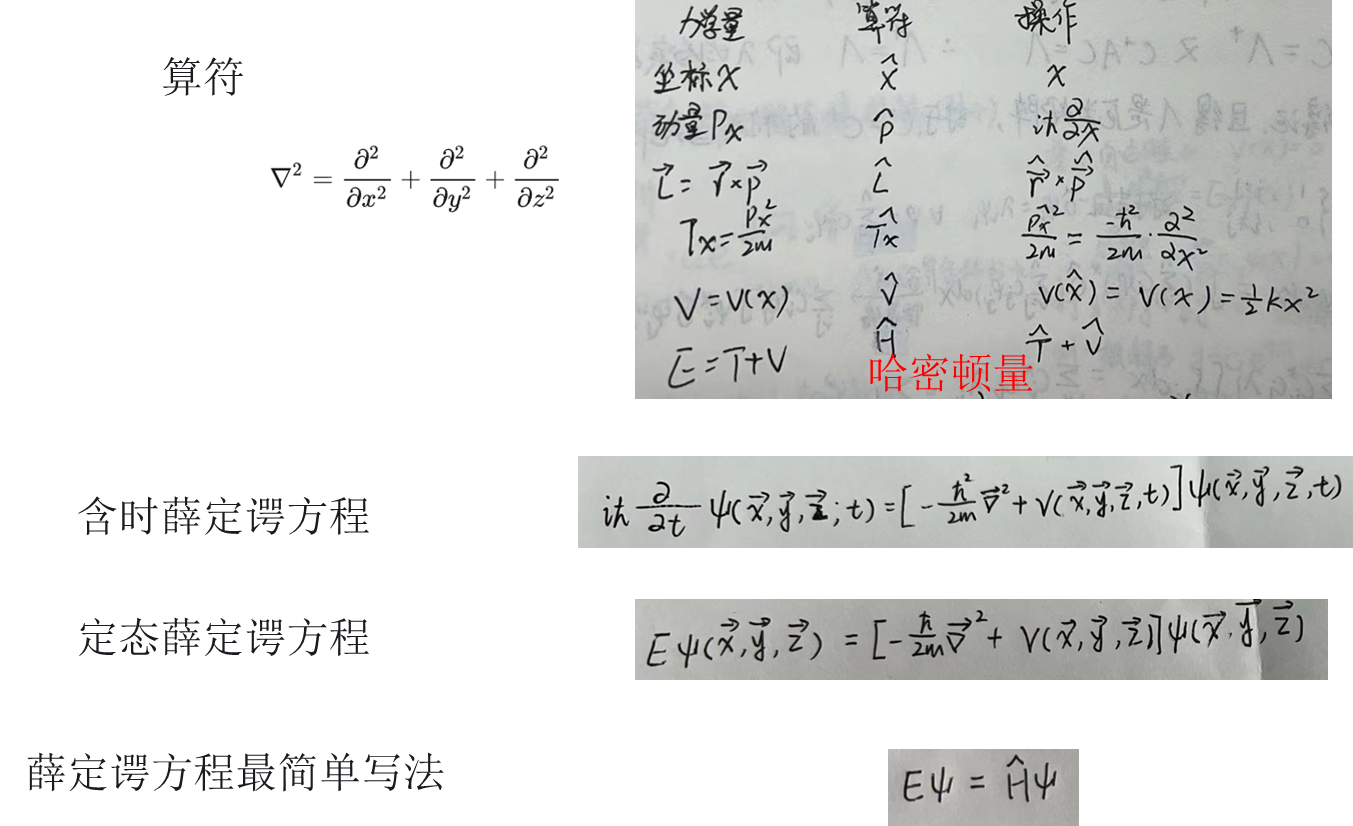 算符
∇² = ∂²/∂x² + ∂²/∂y² + ∂²/∂z²
力学量 算符 操作
坐标X X̂ X
动量Px p̂ iħ ∂/∂x
L⃗ = r⃗×p⃗ L̂ r⃗̂×p⃗̂
Tx = Px²/2m T̂x p̂x²/2m = -ħ²/2m · ∂²/∂x²
V = V(x) V̂ V(x̂) = V(x) = ½kx²
E = T+V Ĥ T̂ + V̂
哈密顿量
含时薛定谔方程
iħ ∂/∂t ψ(x⃗,y⃗,z⃗;t) = [-ħ²/2m ∇⃗² + V(x⃗,y⃗,z⃗,t)]ψ(x⃗,y⃗,z⃗,t)
定态薛定谔方程
Eψ(x⃗,y⃗,z⃗) = [-ħ/2m ∇⃗² + V(x⃗,y⃗,z⃗)]ψ(x⃗,y⃗,z⃗)
薛定谔方程最简单写法
Eψ = Ĥψ